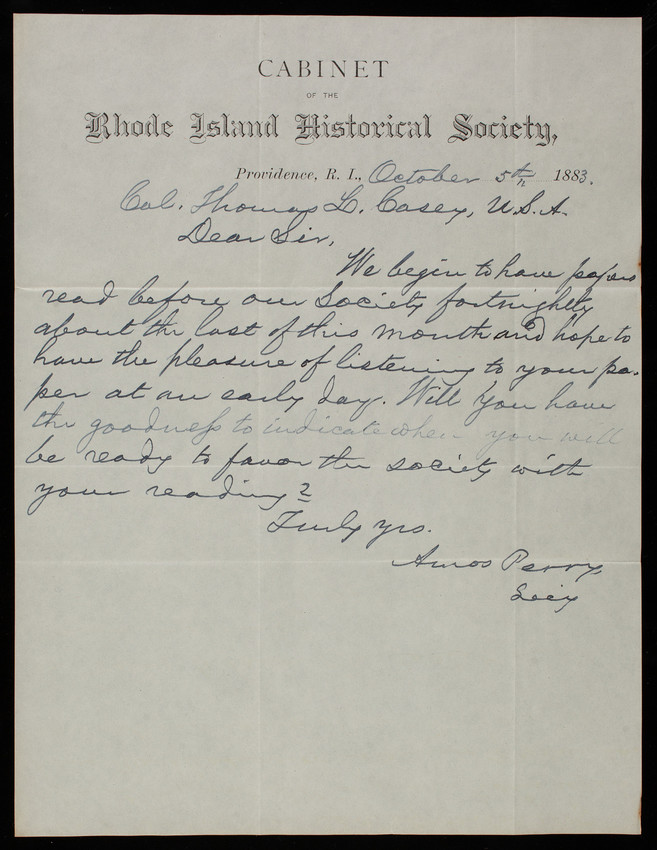 CABINET
OF THE
Rhode Island Historical Society,
Providence, R. I., October 5th 1883.
Col. Thomas L. Casey, U.S.A.
Dear Sir,
We begin to have papers
read before our Society fortnightly
about the last of this month and hope to
have the pleasure of listening to your pa-
per at an early day. Will you have
the goodness to indicate when you will
be ready to favor the society with
your reading?
Truly yrs.
Amos Perry,
Secy